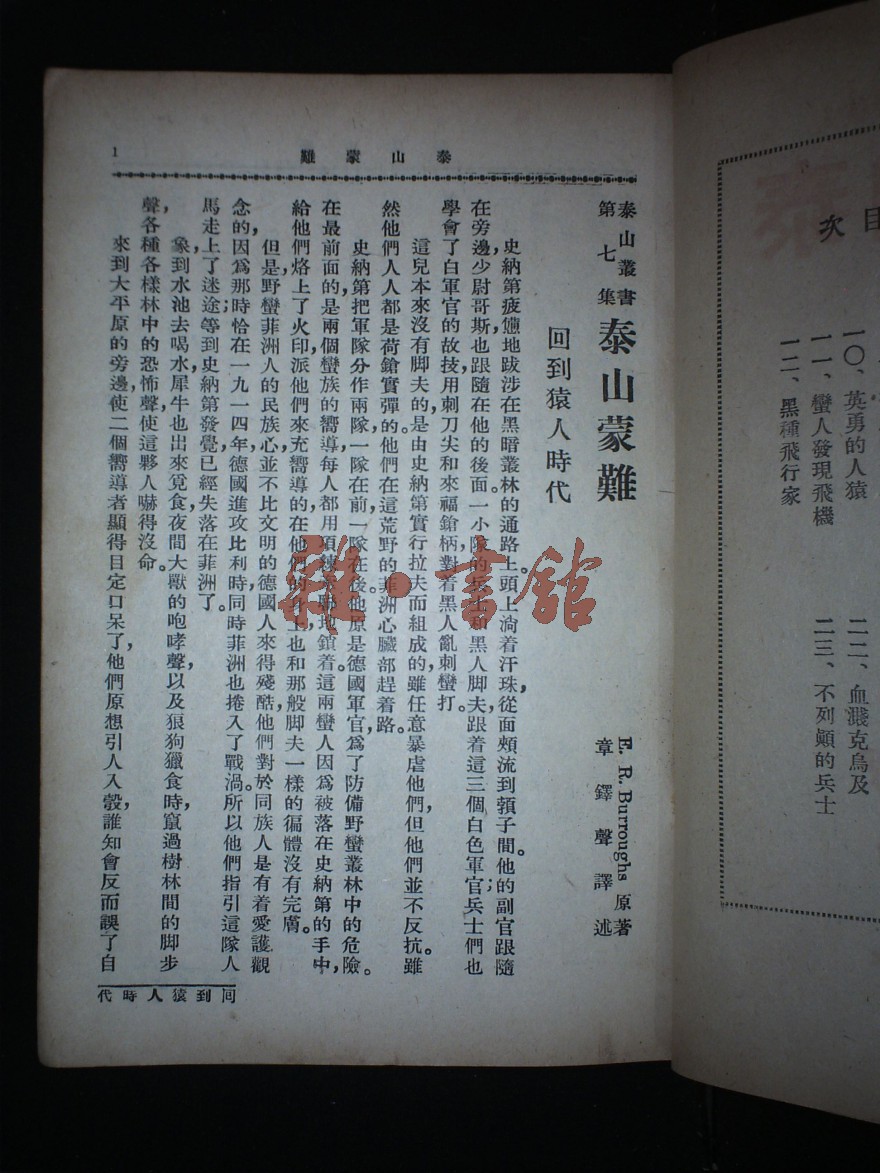 目次
一〇、英勇的人猿
一一、蠻人發現飛機
一二、黑種飛行家
二二、血濺克烏及
二三、不列顛的兵士
泰山蒙難
1
泰山叢書
第七集
泰山蒙難
E. R. Burroughs 原著
章鐸聲譯述
回到猿人時代
史納第疲憊地跋涉在黑暗叢林的通路上。頭上淌着汗珠，從面頰流到頷子間。他的副官跟隨
在旁邊，少尉哥斯也跟隨在他的後面。一小隊的兵士和黑人脚夫跟着這三個白色軍官；兵士們也
學會了白軍官的故技，用刺刀尖和來福鎗柄，對着黑人亂刺蠻打。
這兒本來沒有脚夫的，是由史納第實行拉夫而組成的，雖任意暴虐他們，但他們並不反抗。雖
然他們人人都是荷鎗實彈的。他們在這荒野的菲洲心臟部趕着路。
史納第把軍隊分作兩隊，一隊在前，一隊在後。他原是德國軍官，爲了防備野蠻叢林中的危險。
在最前面的，是兩個蠻族的嚮導，每人都用項鍊聯地鎖着。這兩蠻人因爲被落在史納第的手中，
給他們烙上了火印，派他們來充嚮導的，在他們的身上也和那般脚夫一樣的徧體沒有完膚。
但是野蠻菲洲人的民族心，並不比文明的德國人來得殘酷，他們對於同族人是有着愛護觀
念的，因爲那時恰在一九一四年德國進攻比利時，同時菲洲也捲入了戰渦。所以他們指引這隊人
馬走上了迷途；等到史納第發覺已經失落在菲洲了。
象到水池去喝水，犀牛也出來覓食，夜間大獸的咆哮聲，以及狼狗獵食時，竄過樹林間的脚步
聲，各種各樣林中的恐怖聲，使這夥人嚇得沒命。
來到大平原的旁邊，使二個嚮導者顯得目定口呆了，他們原想引人入彀，誰知會反而誤了自
回到猿人時代
雜·書館